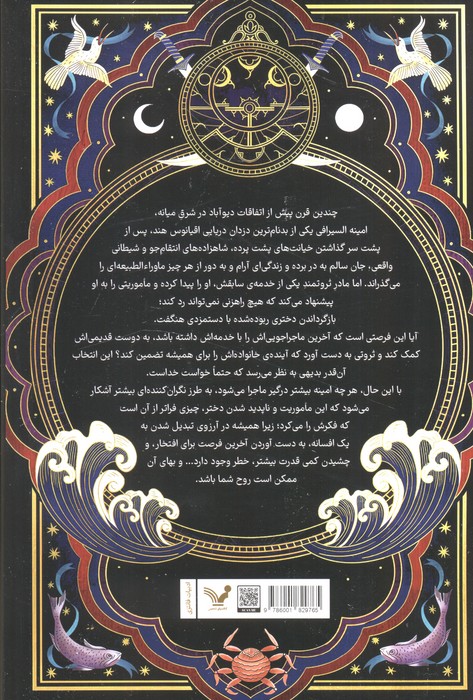 چندین قرن پیش از اتفاقات دیوآباد در شرق میانه،
امینه السیرافی یکی از بدنام‌ترین دزدان دریایی اقیانوس هند، پس از
پشت سر گذاشتن خیانت‌های پشت پرده، شاهزاده‌های انتقام‌جو و شیطانی
واقعی، جان سالم به در برده و زندگی‌ای آرام و به دور از هر چیز ماوراءالطبیعه‌ای را
می‌گذراند. اما مادر ثروتمند یکی از خدمه‌ی سابقش، او را پیدا کرده و مأموریتی را به او
پیشنهاد می‌کند که هیچ راهزنی نمی‌تواند رد کند؛
بازگرداندن دختری ربوده‌شده با دستمزدی هنگفت.
آیا این فرصتی است که آخرین ماجراجویی‌اش را با خدمه‌اش داشته باشد، به دوست قدیمی‌اش
کمک کند و ثروتی به دست آورد که آینده‌ی خانواده‌اش را برای همیشه تضمین کند؟ این انتخاب
آن‌قدر بدیهی به نظر می‌رسد که حتماً خواست خداست.
با این حال، هر چه امینه بیشتر درگیر ماجرا می‌شود، به طرز نگران‌کننده‌ای بیشتر آشکار
می‌شود که این مأموریت و ناپدید شدن دختر، چیزی فراتر از آن است
که فکرش را می‌کرد؛ زیرا همیشه در آرزوی تبدیل شدن به
یک افسانه، به دست آوردن آخرین فرصت برای افتخار، و
چشیدن کمی قدرت بیشتر، خطر وجود دارد... و بهای آن
ممکن است روح شما باشد.
ادبیات فانتزی
9 786001 829765